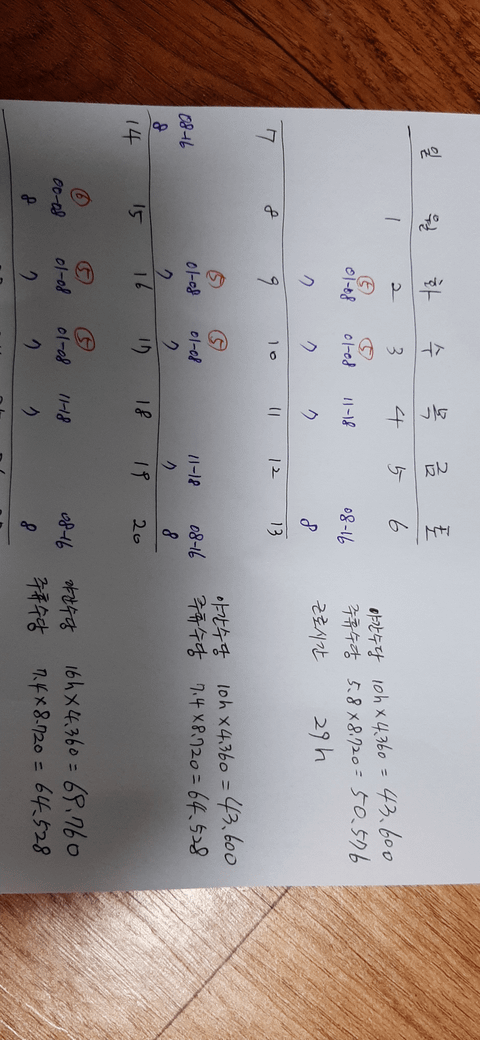 일 월 화 수 목 금 토
1 2 3 4 5 6
⑤ ⑤ 야간수당 10h × 4.360 = 43.600
01-08 01-08 11-18 08-16 주휴수당 5.8 × 8.720 = 50.576
7 7 7 8 근로시간 29h
7 8 9 10 11 12 13
⑤ ⑤ 야간수당 10h × 4.360 = 43.600
08-16 01-08 01-08 11-18 08-16 주휴수당 7.4 × 8.720 = 64.528
8 7 7 7 8
14 15 16 17 18 19 20
⑥ ⑤ ⑤ 야간수당 16h × 4.360 = 69.760
00-08 01-08 01-08 11-18 08-16 주휴수당 7.4 × 8.720 = 64.528
8 7 7 7 8